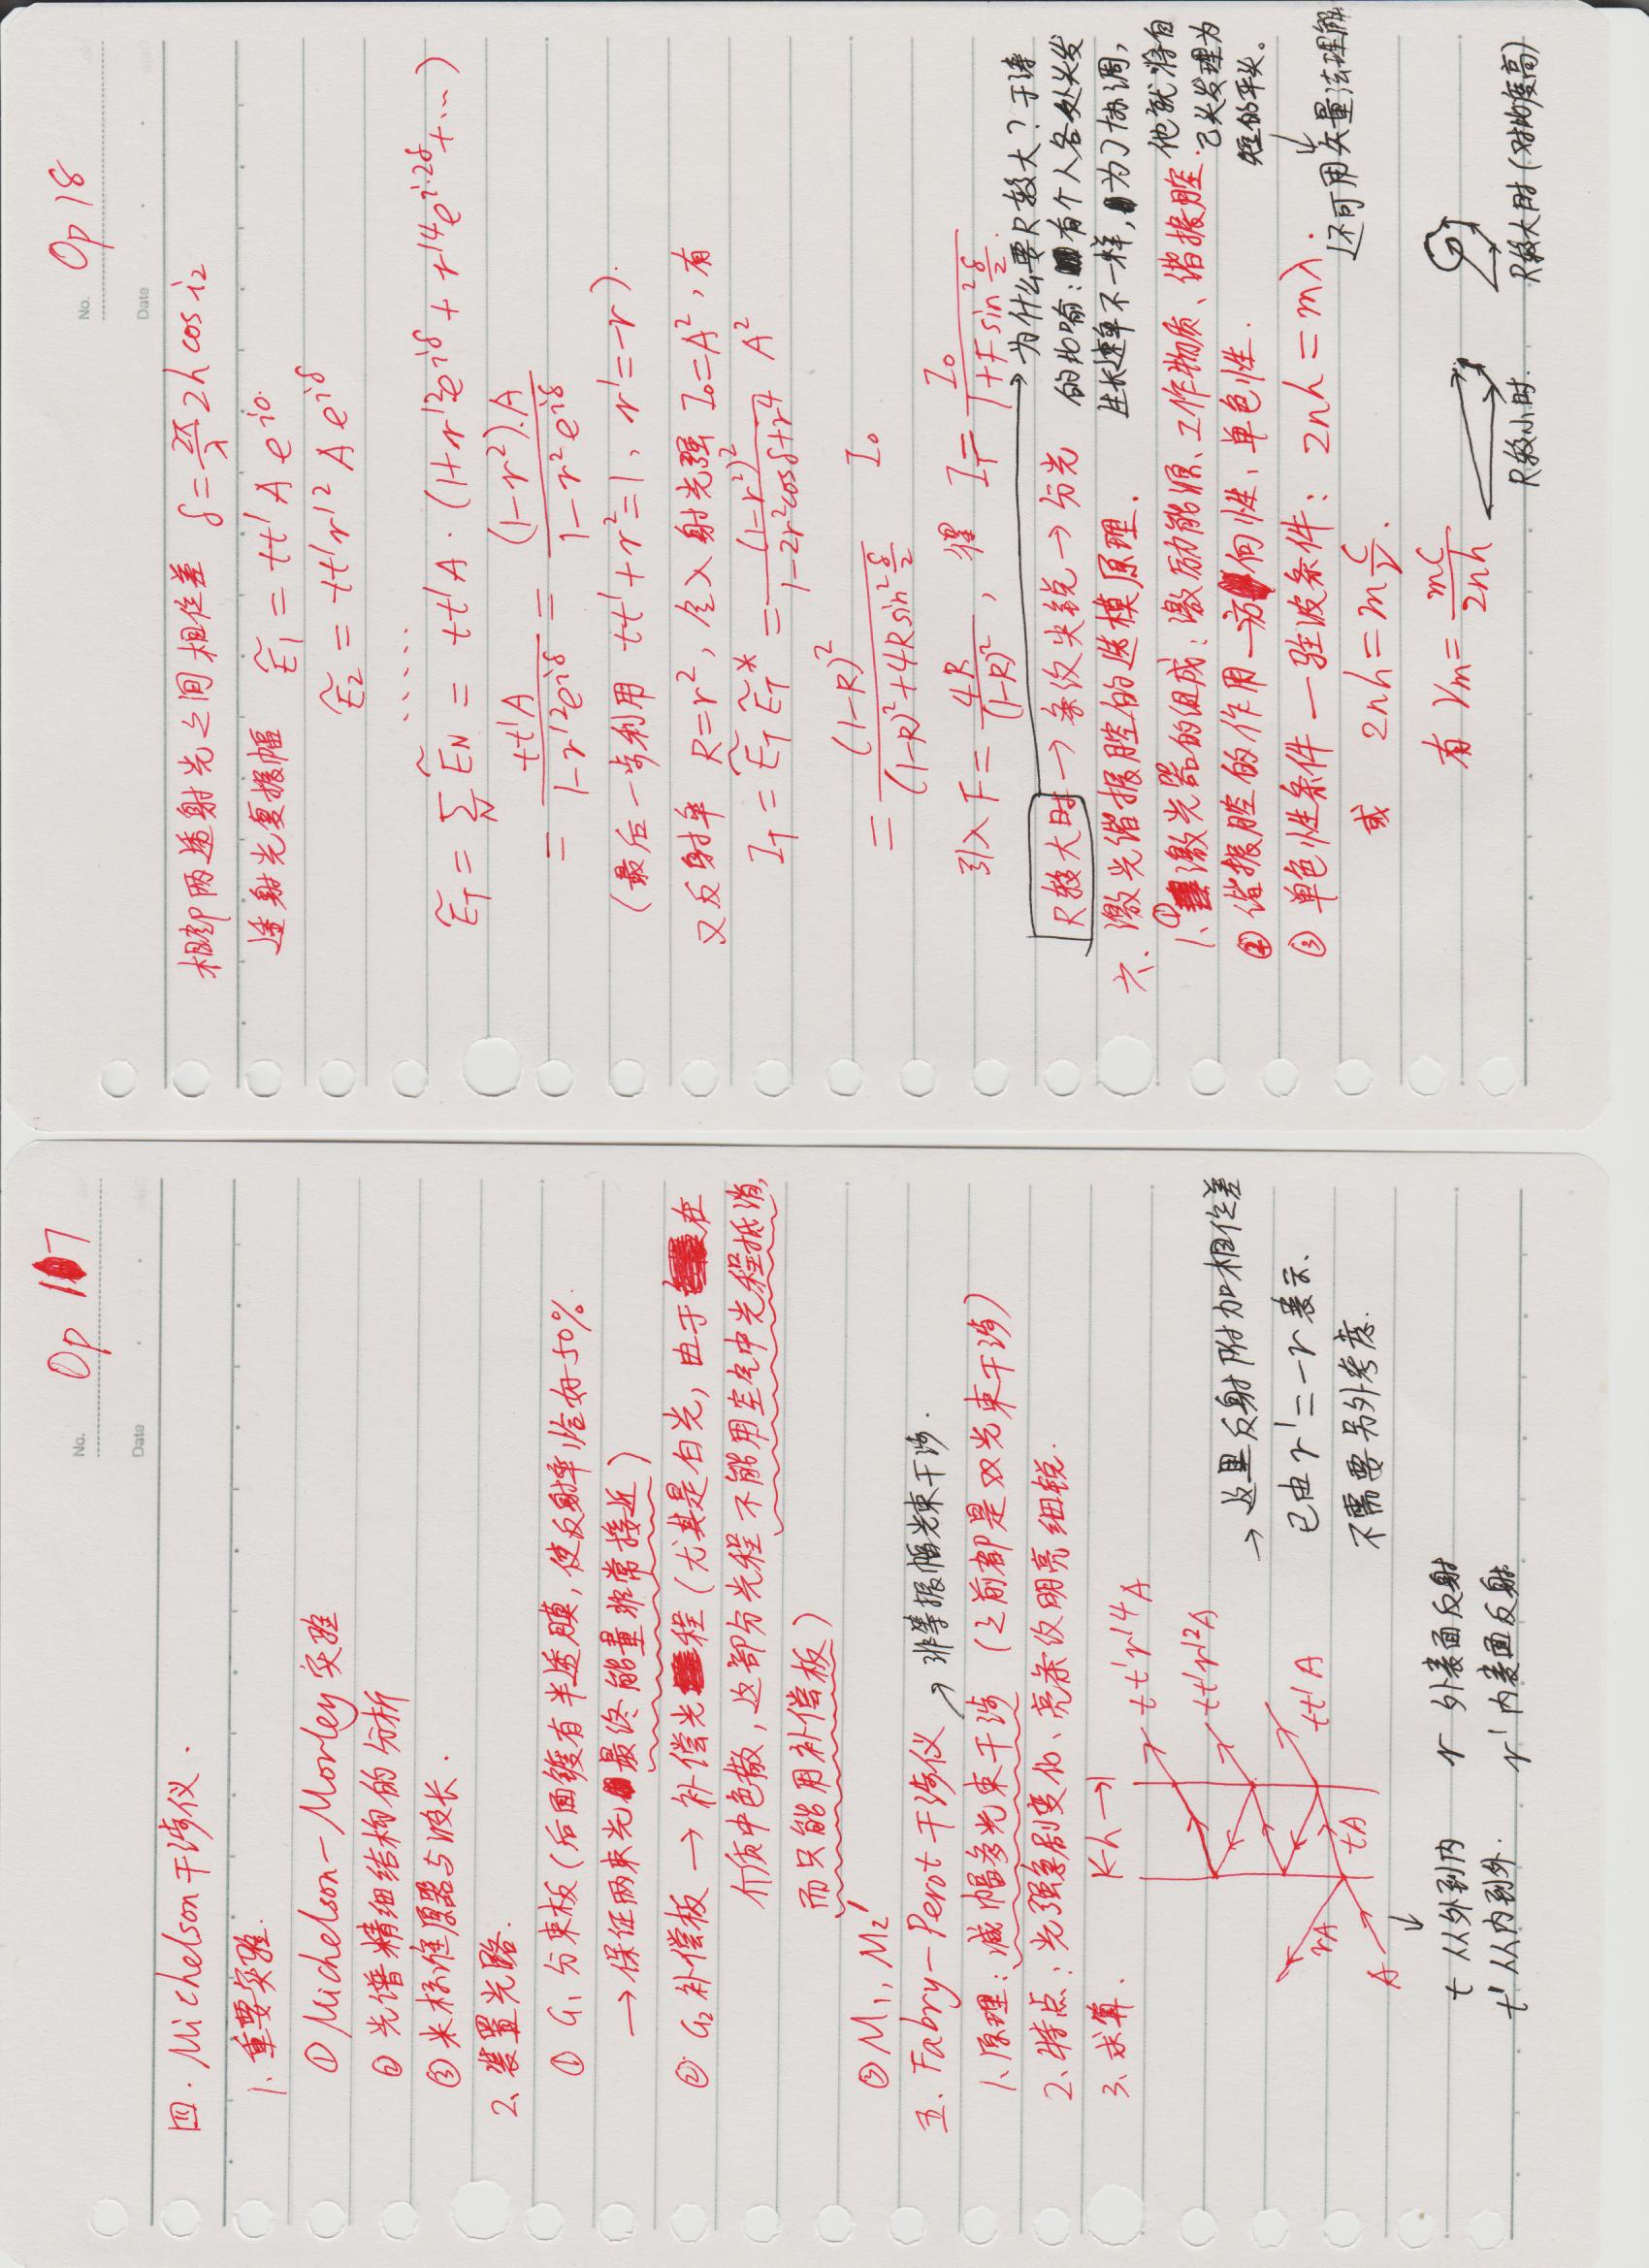 No. Op 17
Date
四. Michelson干涉仪.
1. 重要实验.
① Michelson-Morley 实验
② 光谱精细结构的分析
③ 米标准原器与波长.
2、装置光路.
① G₁ 分束板(后面镀有半透膜,使反射率恰好50%.
→保证两束光最终能量非常接近)
② G₂ 补偿板 → 补偿光程(尤其是白光,由于在
介质中色散,这部分光程不能用空气中光程抵消,
而只能用补偿板)
③ M₁, M₂'
五. Fabry-Perot 干涉仪 → 非等振幅光束干涉.
1. 原理: 减幅多光束干涉 (之前都是双光束干涉)
2. 特点: 光强急剧变化、亮条纹明亮细锐.
3. 求算.
|←h→|
tt'r'⁴A
tt'r'²A
tt'A
rA
tA
A
→ 这里反射附加相位差
已由 r'=-r 表示.
不需要另外考虑.
↓
t 从外到内 r 外表面反射
t' 从内到外. r' 内表面反射
No. Op 18
Date
相邻两透射光之间相位差 δ = 2π/λ 2h cos i₂
透射光复振幅 Ẽ₁ = tt'A e^{i0}
Ẽ₂ = tt'r'² A e^{iδ}
.....
Ẽ_T = Σ_N Ẽ_N = tt'A·(1+r'²e^{iδ} + r'⁴e^{i·2δ}+…)
= tt'A / (1-r'²e^{iδ}) = (1-r²).A / (1-r²e^{iδ})
(最后一步利用 tt'+r²=1, r'=-r).
又反射率 R=r², 令入射光强 I₀=A², 有
I_T = Ẽ_T Ẽ_T* = (1-r²)² / (1-2r²cosδ+r⁴) A²
= (1-R)² / ((1-R)²+4R sin² δ/2) I₀
引入 F = 4R/(1-R)², 得 I_T = I₀ / (1+F sin² δ/2).
R较大时 → 条纹尖锐 → 分光
→ 为什么要R较大? 于涛
的比喻: 有个人各处头发
生长速率不一样, 为了协调,
他就将自
己头发理为
短的平头。
↓
还可用矢量法理解
六. 激光谐振腔的选模原理.
1. ① 激光器的组成: 激励能源、工作物质、谐振腔.
② 谐振腔的作用 — 方向性、单色性.
③ 单色性条件 — 驻波条件: 2nh = mλ.
或 2nh = m c/ν.
有 ν_m = mc/2nh
R较小时. R较大时 (对比度高)